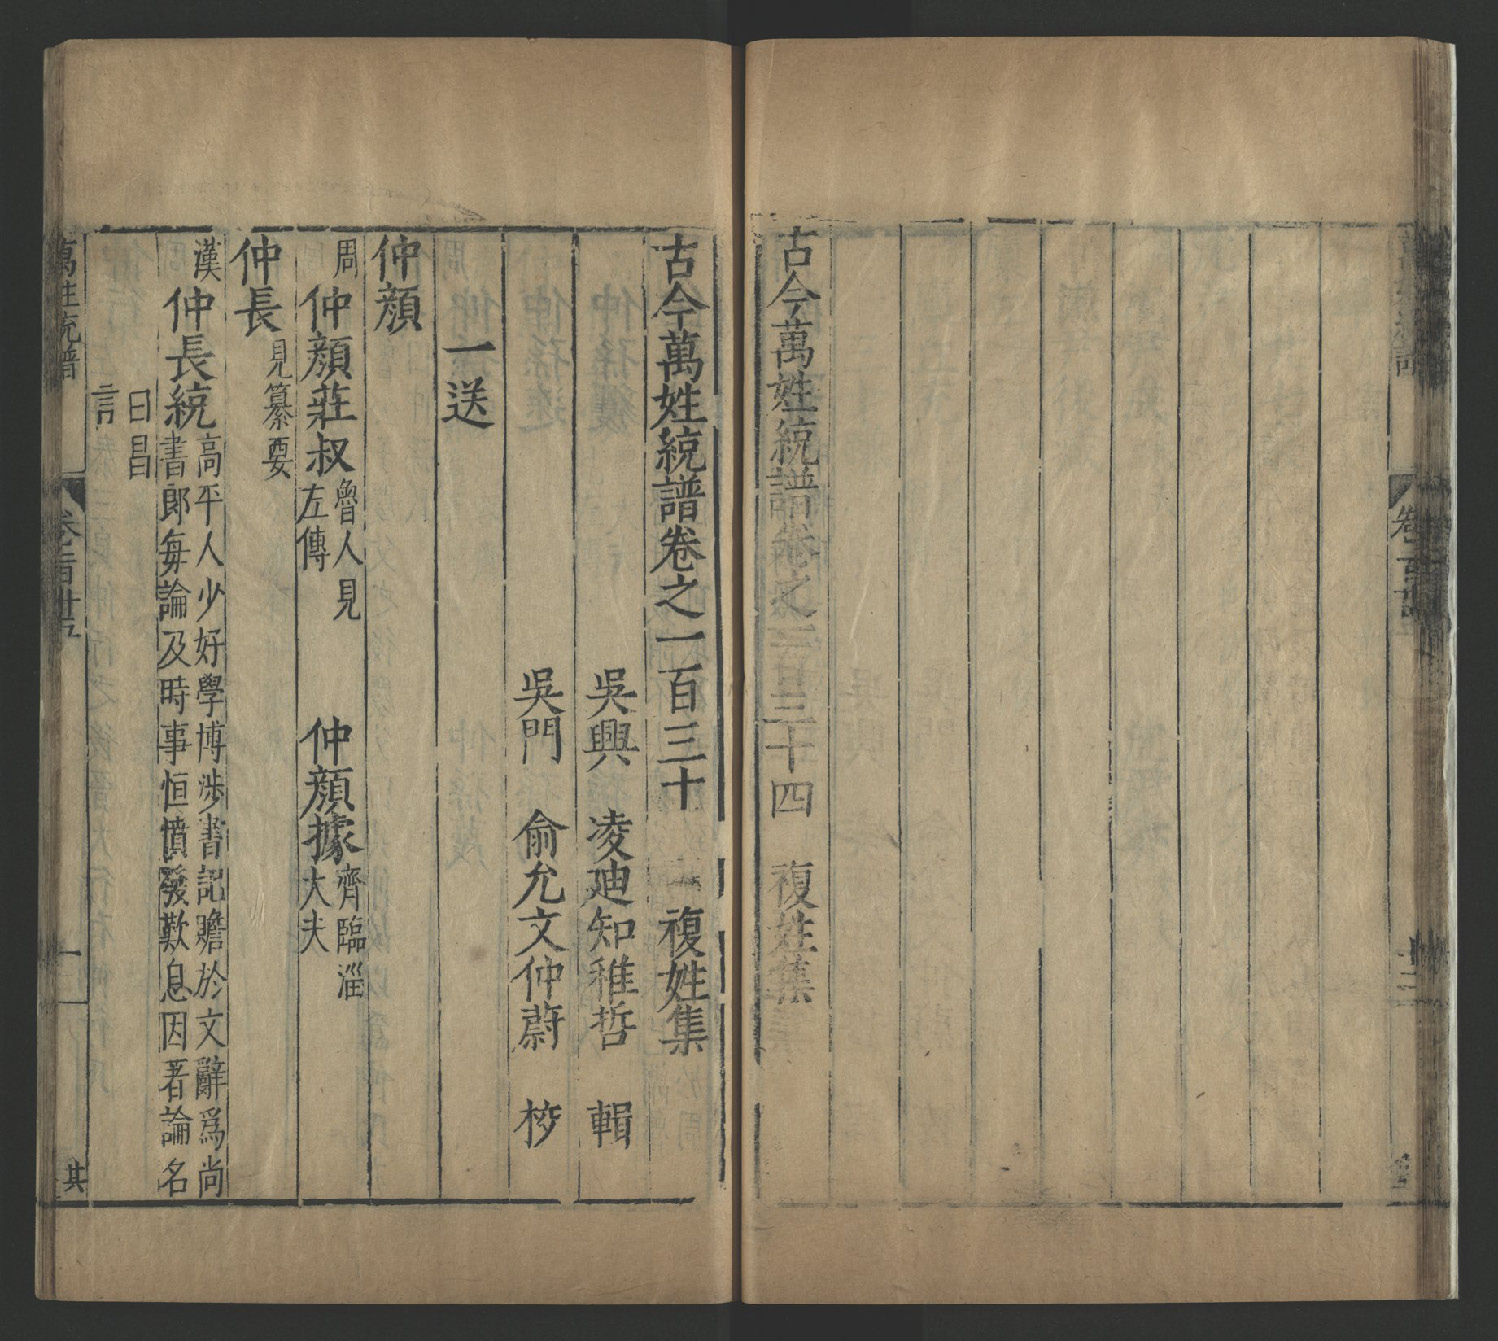 古今萬姓統譜卷之一百三十四 複姓集
古今萬姓統譜卷之一百三十 複姓集
吳興 凌迪知稚哲 輯
吳門 俞允文仲蔚 挍
一送
仲顏
周 仲顏莊叔 魯人見
左傳
仲顏據 齊臨淄
大夫
仲長 見纂要
漢 仲長統 高平人少好學博涉書記贍於文辭爲尚
書郎每論及時事恒憤發歎息因著論名
曰昌
言
萬姓統譜